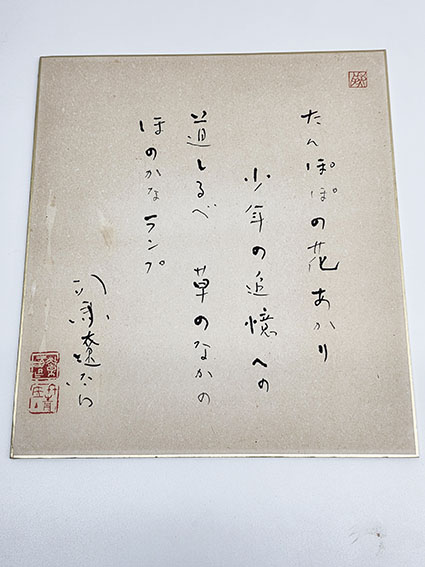 たんぽぽの花あかり
少年の追憶への
道しるべ 草のなかの
ほのかな ランプ
司馬遼太郎